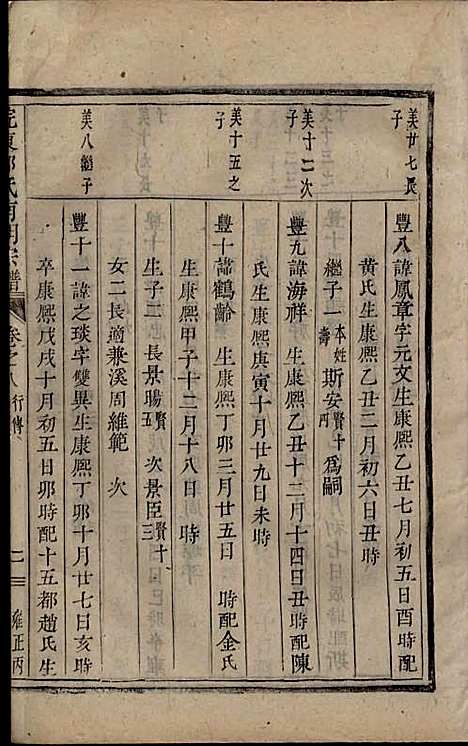 美廿七長子
豐八諱鳳章字元文生康熙乙丑七月初五日酉時配
黃氏生康熙乙丑二月初六日丑時
繼子一本姓壽斯安賢十四為嗣
美十二次子
豐九諱海祥 生康熙乙丑十二月十四日丑時配陳
氏生康熙庚寅十月廿九日未時
美十五之子
豐十諱鶴齡 生康熙丁卯三月廿五日 時配金氏
生康熙甲子十二月十八日 時
生子二 長景暘賢五 次景臣賢十三
女二長適兼溪周維範 次
美八繼子
豐十一諱之琰字雙異生康熙丁卯十月廿七日亥時
卒康熙戊戌十月初五日卯時配十五都趙氏生
氏南明宗譜 卷之八 行傳 雍正丙